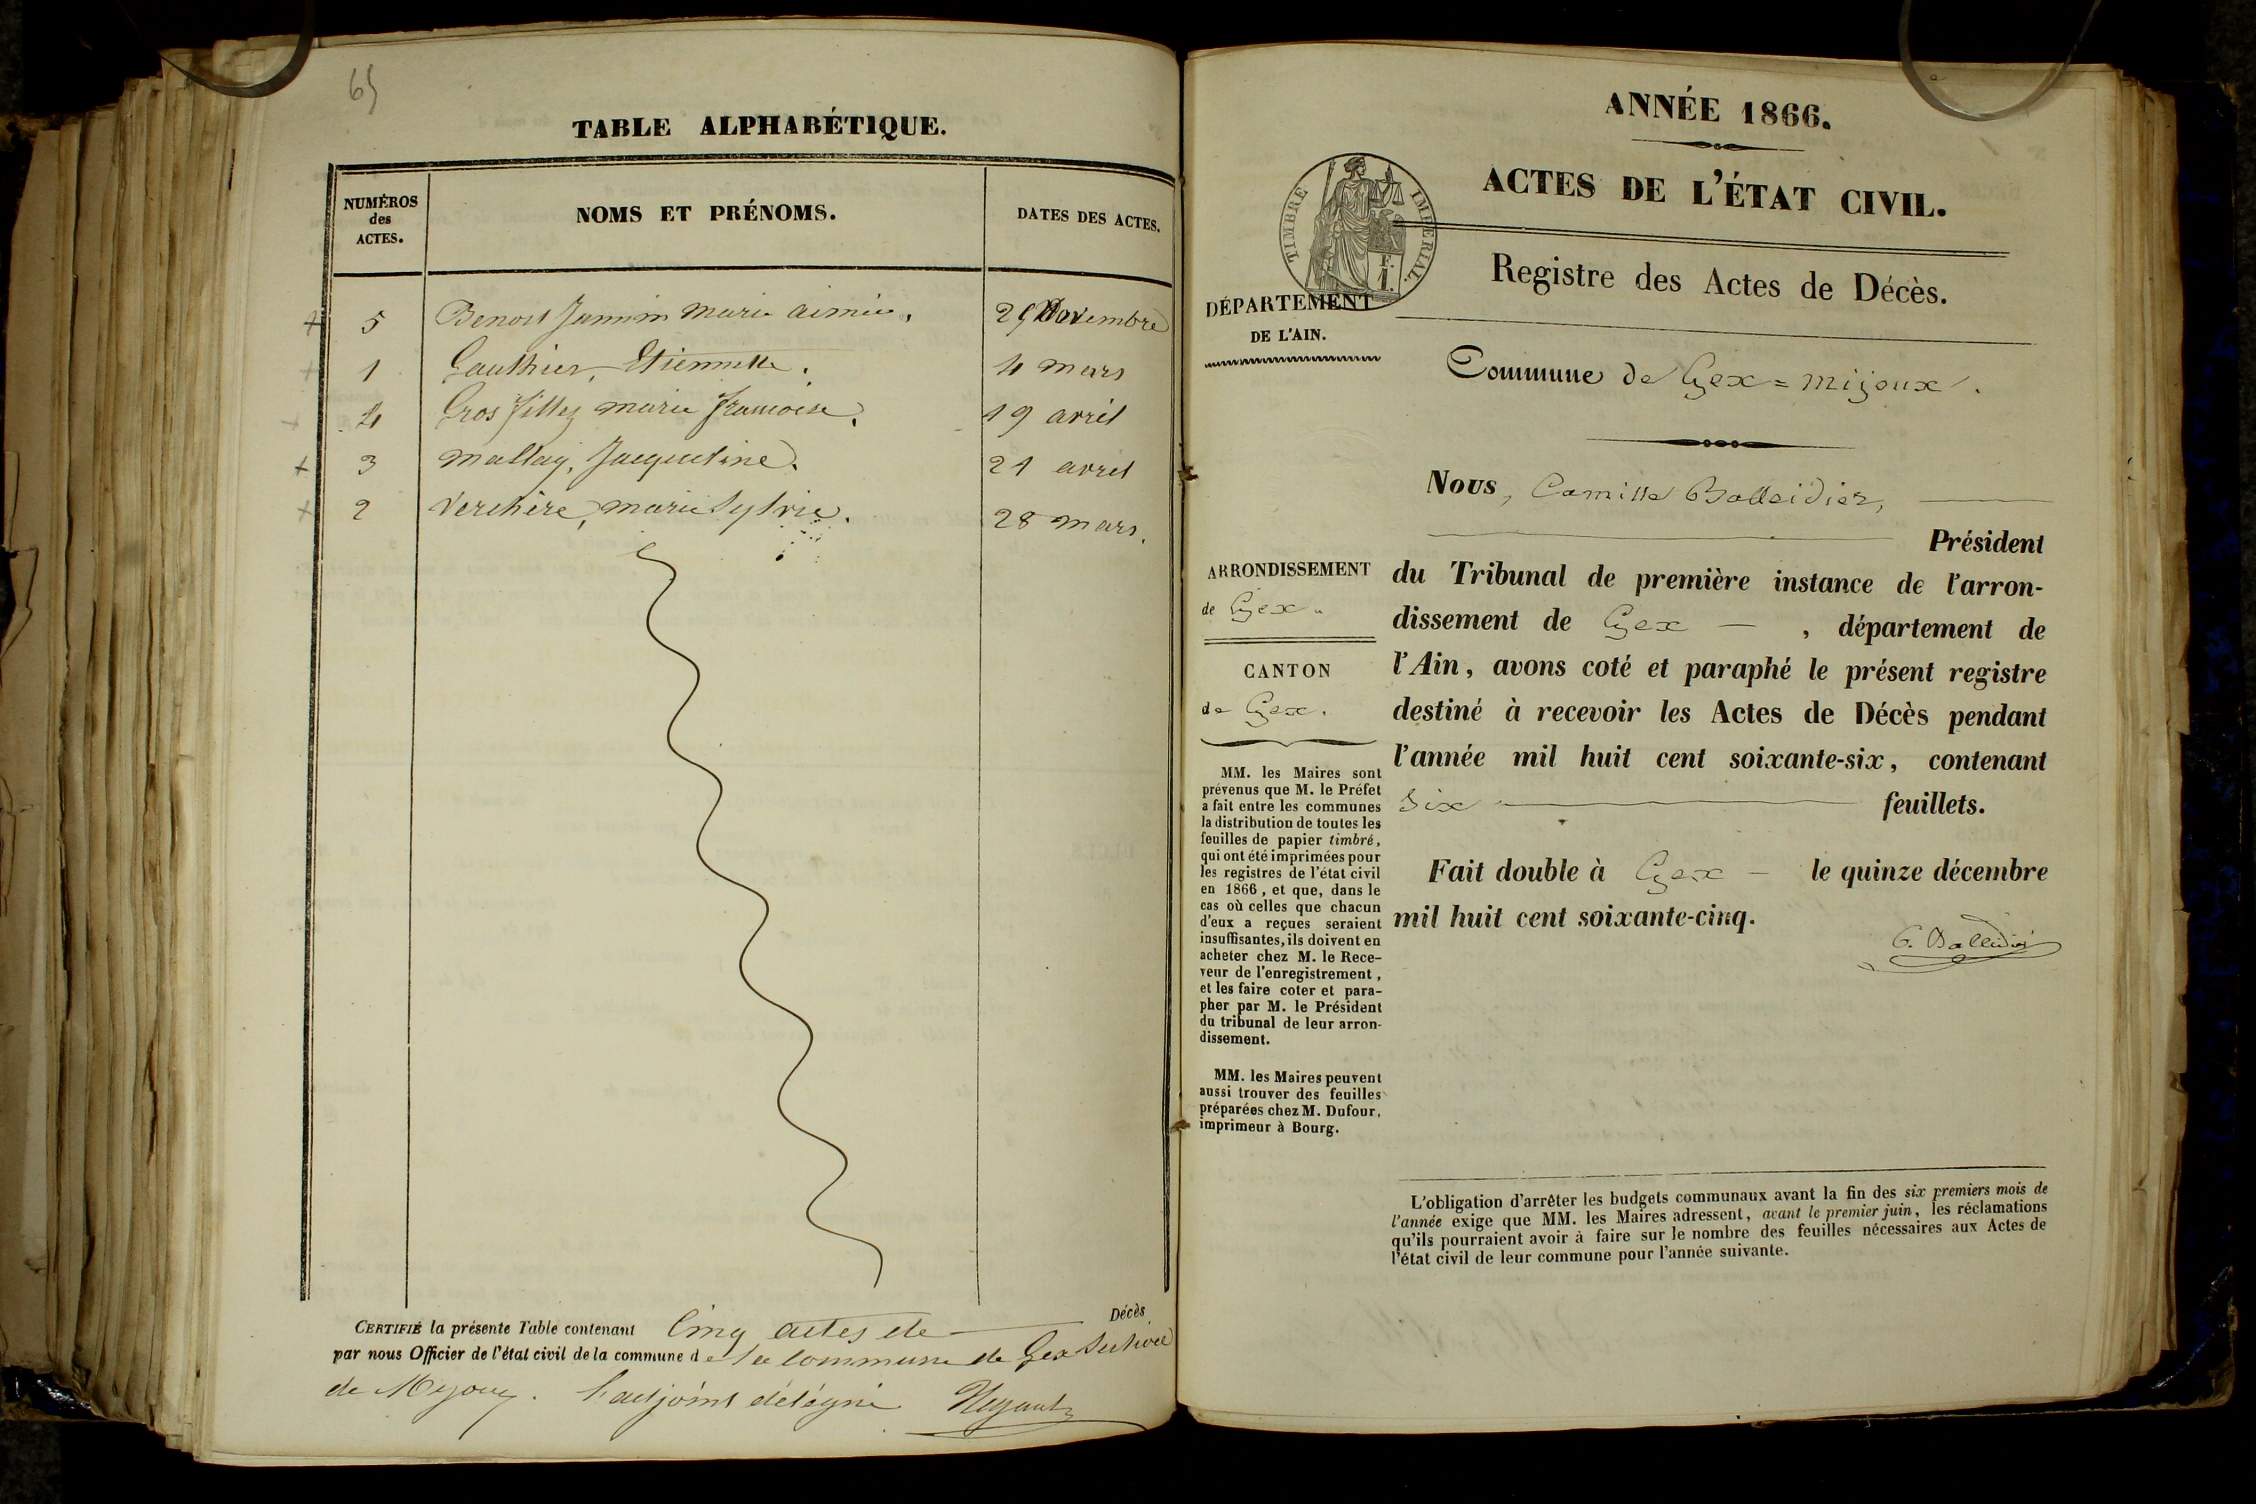 65
TABLE ALPHABÉTIQUE.
NUMÉROS
des
ACTES.
NOMS ET PRÉNOMS.
DATES DES ACTES.
5 Benoit Jannin Marie aimée. 29 Novembre
1 Gauthier, Etiennette. 4 mars
4 Gros fillez marie françoise. 19 avril
3 Mallay, Jacqueline. 21 avril
2 Verchère, marie Sylvie. 28 mars.
CERTIFIÉ la présente Table contenant Cinq actes de Décès
par nous Officier de l'état civil de la commune de la commune de Gex Section
de Mijoux. l'adjoint délégué
ANNÉE 1866.
ACTES DE L'ÉTAT CIVIL.
TIMBRE IMPÉRIAL.
F.
1.
Registre des Actes de Décès.
DÉPARTEMENT
DE L'AIN.
Commune de Gex = mijoux.
Nous, Camille Balleidier,
Président
du Tribunal de première instance de l'arron-
dissement de Gex — , département de
l'Ain, avons coté et paraphé le présent registre
destiné à recevoir les Actes de Décès pendant
l'année mil huit cent soixante-six, contenant
six feuillets.
Fait double à Gex — le quinze décembre
mil huit cent soixante-cinq.
C. Balleidier
ARRONDISSEMENT
de Gex.
CANTON
de Gex.
MM. les Maires sont
prévenus que M. le Préfet
a fait entre les communes
la distribution de toutes les
feuilles de papier timbré,
qui ont été imprimées pour
les registres de l'état civil
en 1866, et que, dans le
cas où celles que chacun
d'eux a reçues seraient
insuffisantes, ils doivent en
acheter chez M. le Rece-
veur de l'enregistrement,
et les faire coter et para-
pher par M. le Président
du tribunal de leur arron-
dissement.
MM. les Maires peuvent
aussi trouver des feuilles
préparées chez M. Dufour,
imprimeur à Bourg.
L'obligation d'arrêter les budgets communaux avant la fin des six premiers mois de
l'année exige que MM. les Maires adressent, avant le premier juin, les réclamations
qu'ils pourraient avoir à faire sur le nombre des feuilles nécessaires aux Actes de
l'état civil de leur commune pour l'année suivante.